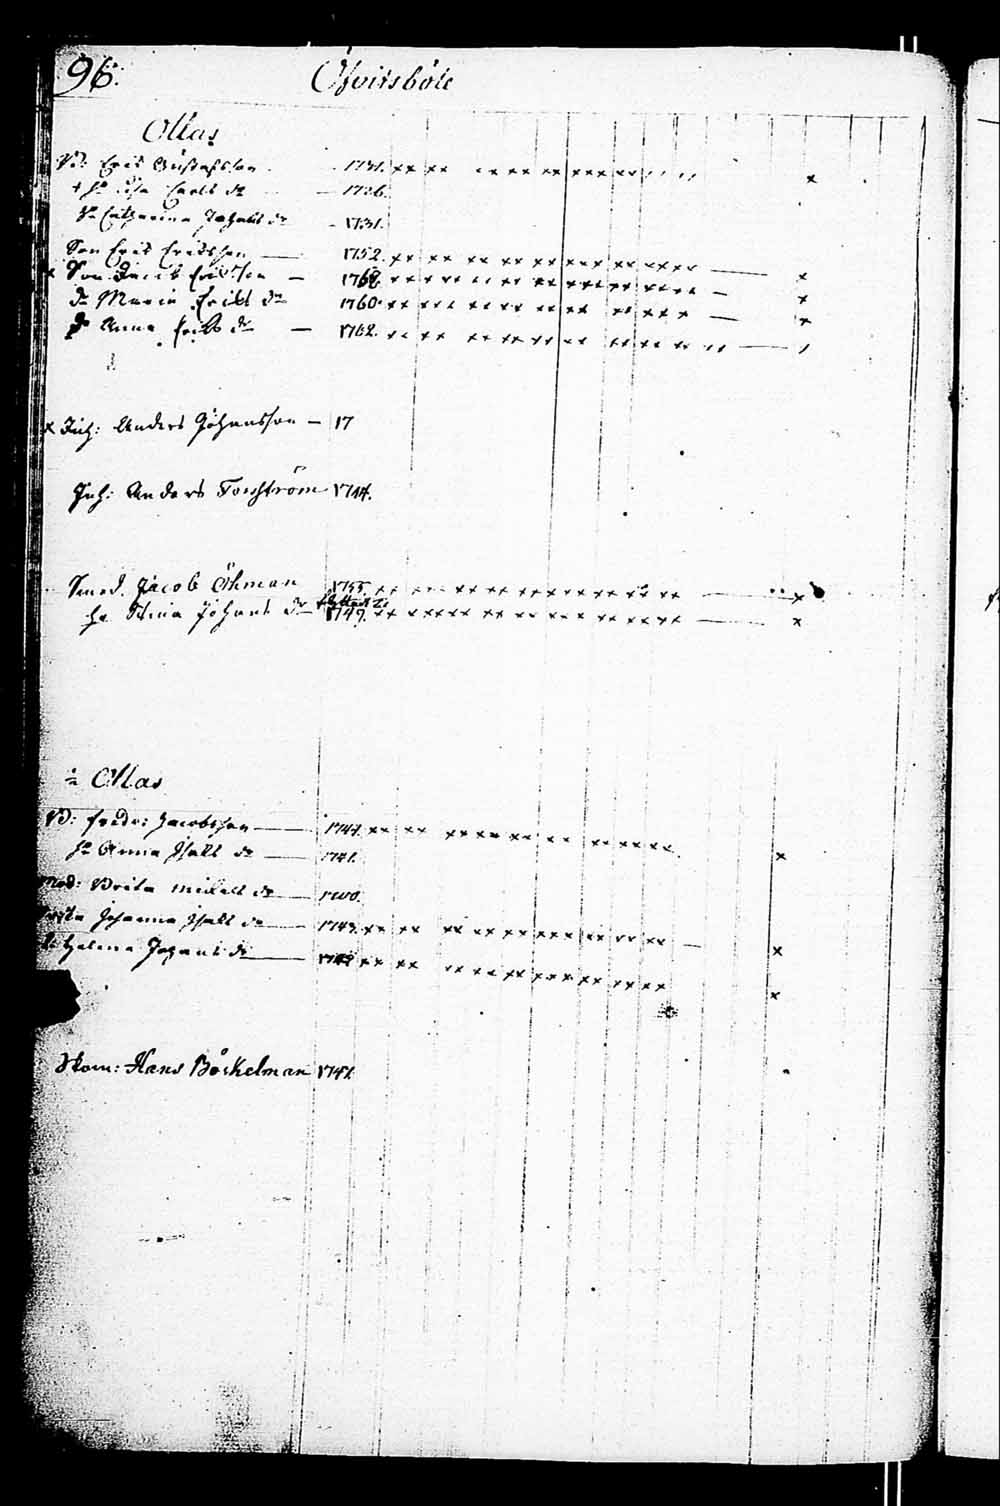 96.
Öfvitsböle
Ollas
Vd: Eric Gustafsson 1731.
+ h: Lisa Carls dr 1726.
Catharina Johans dr 1731.
Son Eric Ericsson 1752.
x Son Ericsson 1768.
dr Maria Eriks dr 1760.
dr Anna Eriks dr 1762.
x Inh: Anders Johansson 17
Inh: Anders Forsström 1714.
Smed. Jacob Öhman 1755.
hu Stina Johans dr 1749.
Ollas
Vd: Fredr: Jacobsson 1744.
hu Anna Isaks dr 1741.
Brita Mickels dr 1700.
Johanna Isaks dr 1743.
Helena Johans dr
Skom: Hans Böckelman 1741.